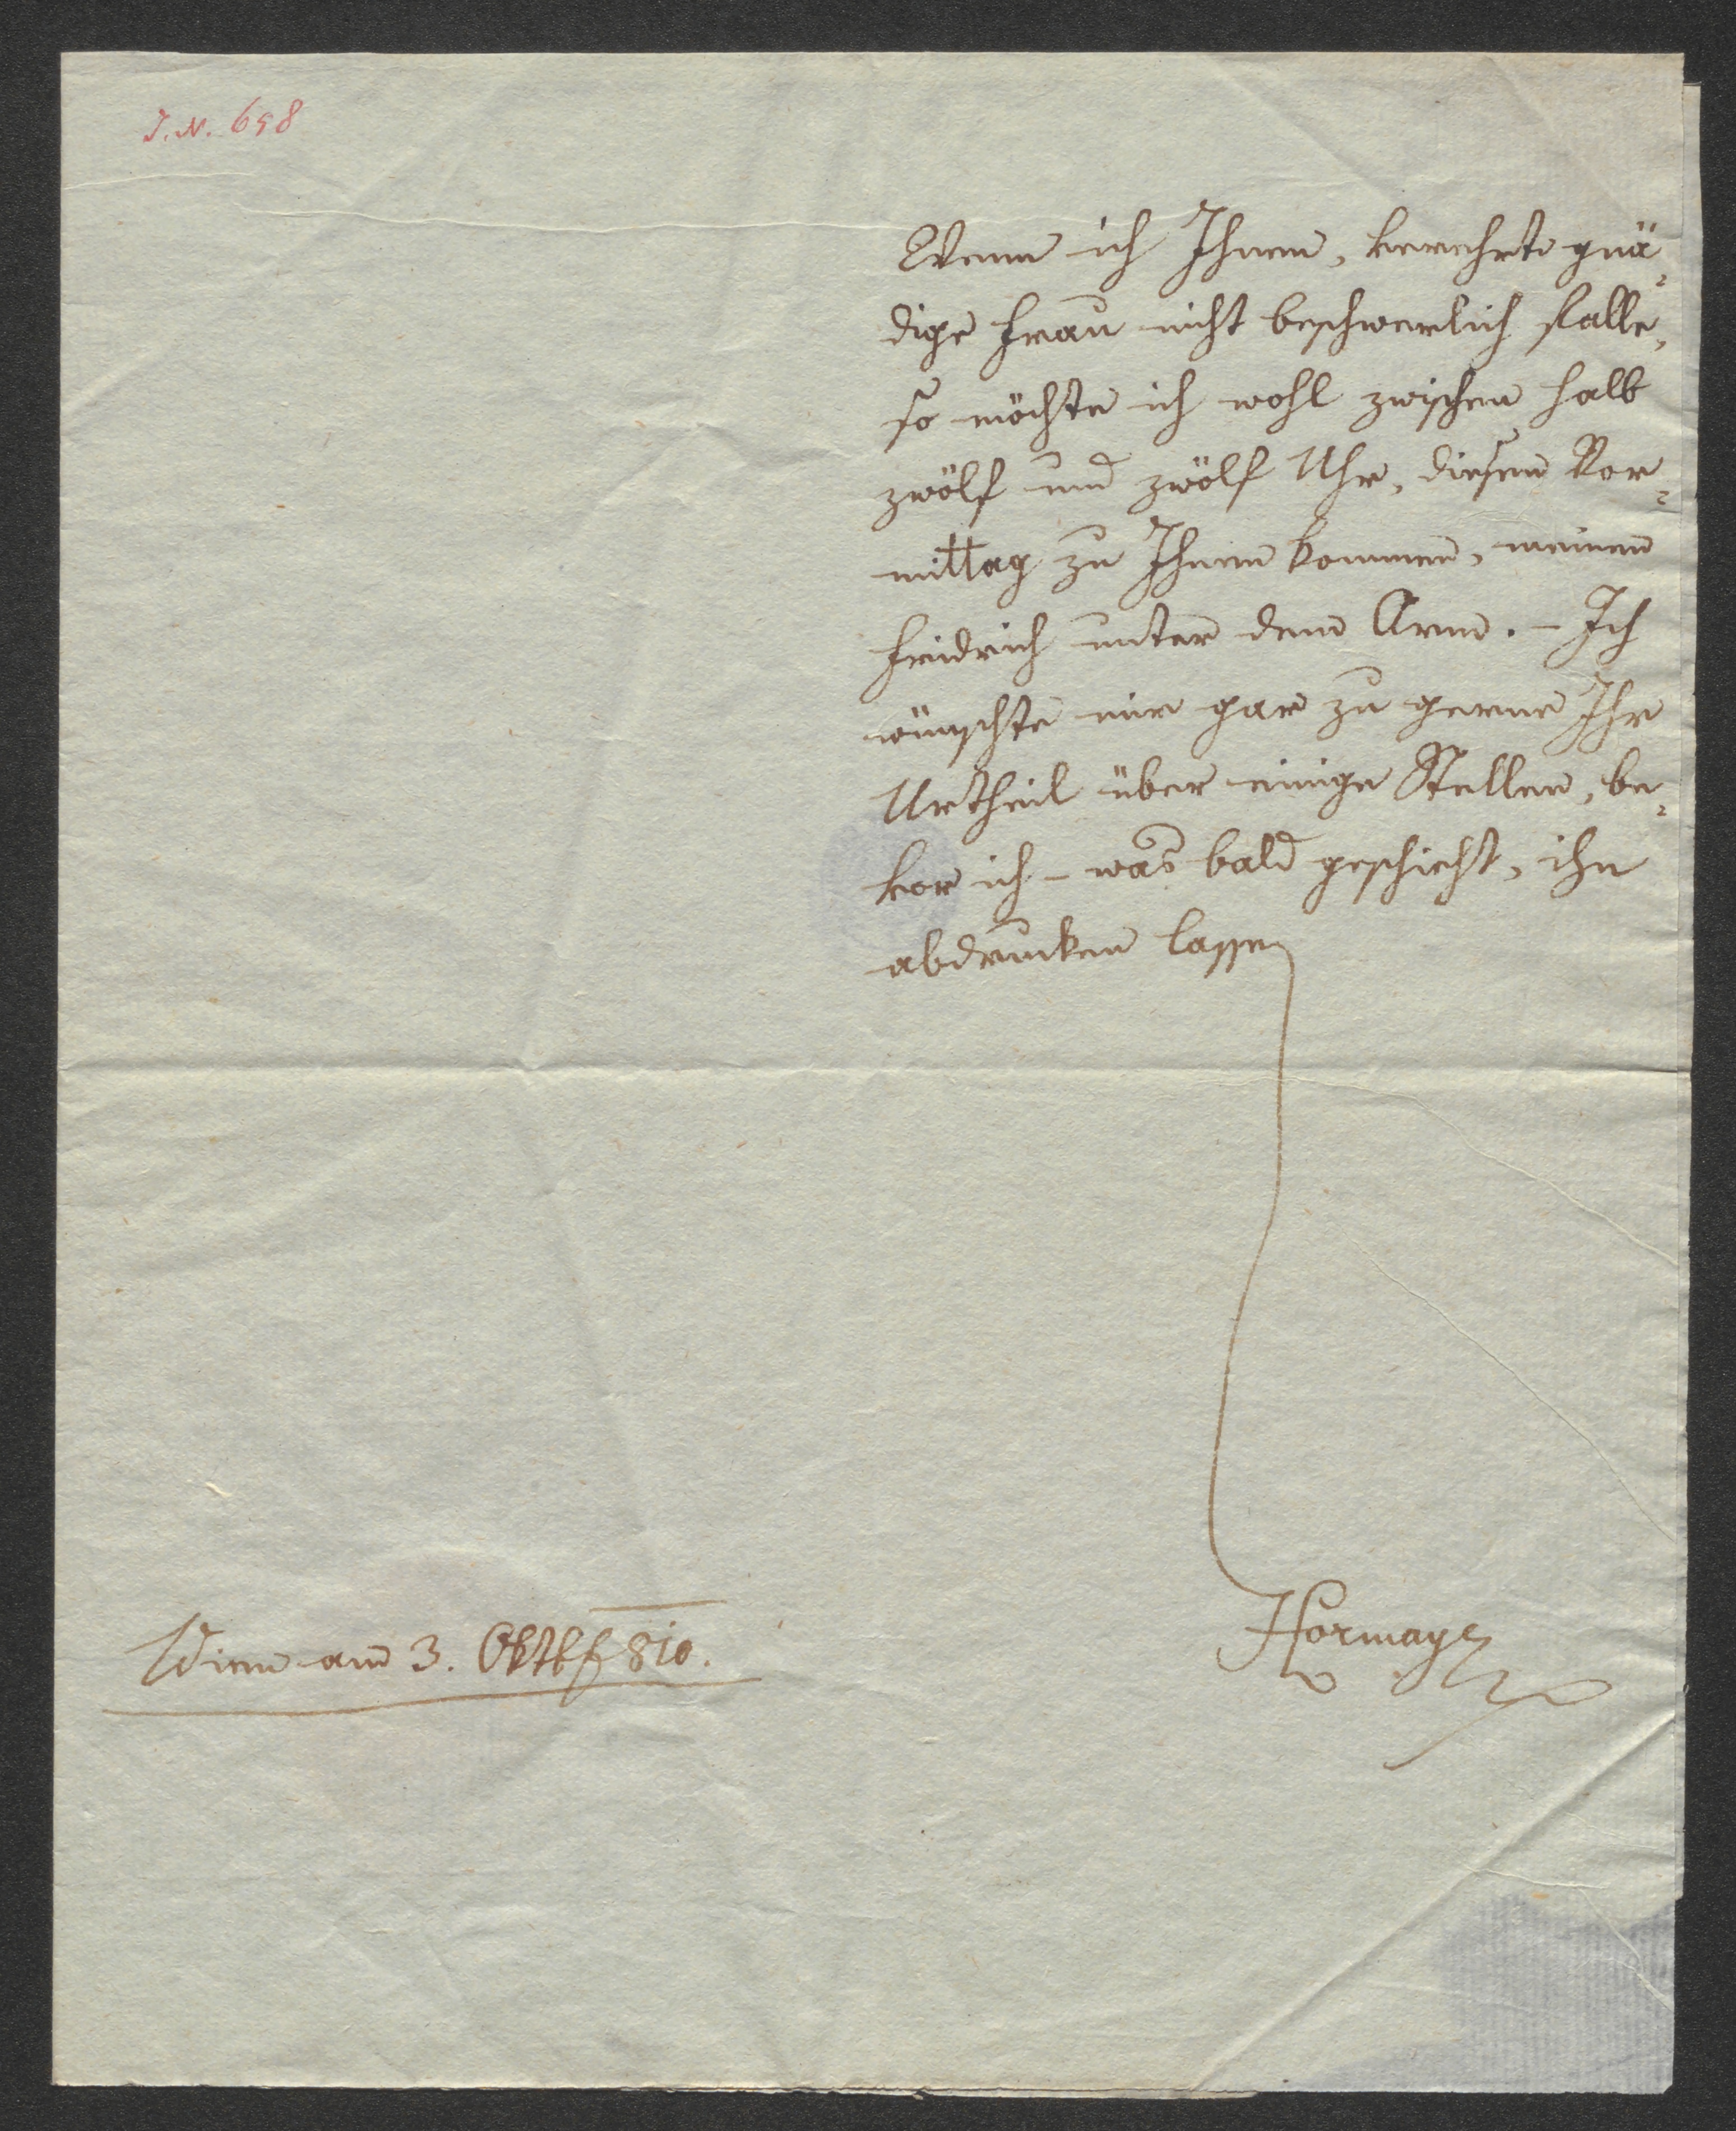 I. N. 698
Wenn ich Ihnen, verehrte gnä-
dige Frau nicht beschwerlich falle,
so möchte ich wohl zwischen halb
zwölf und zwölf Uhr, diesen Vor-
mittag zu Ihnen kommen, meinen
Fridrich unter dem Arm. – Ich
wünschte mir gar zu gerne Ihr
Urtheil über einige Stellen, be-
vor ich – was bald geschieht, ihn
abdrucken lasse
Hormayr
Wien am 3. Oktbr 810.